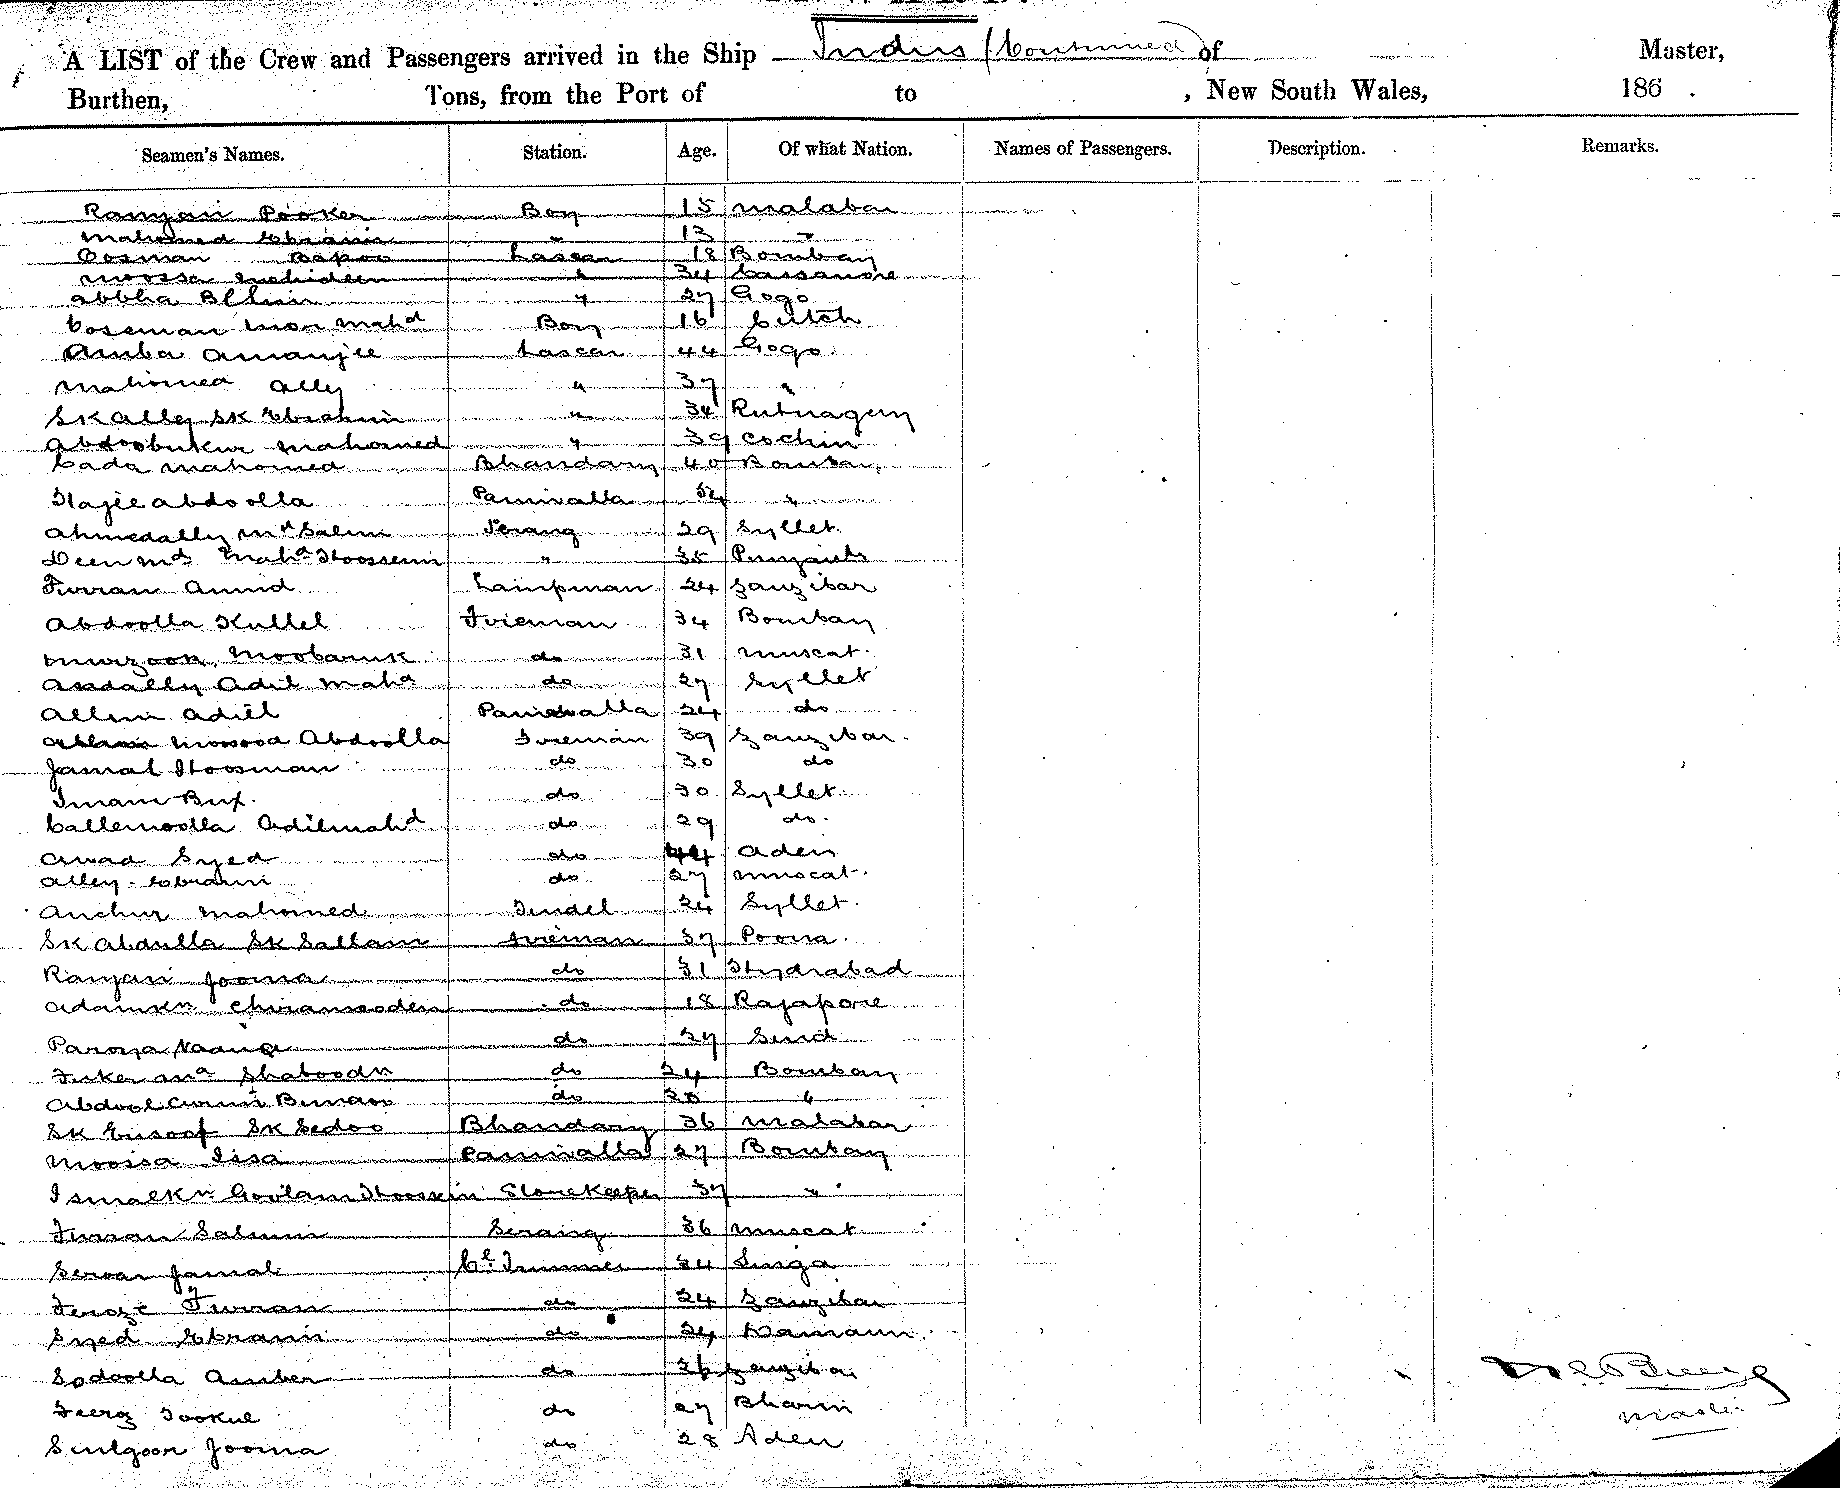 A LIST of the Crew and Passengers arrived in the Ship Indus (Continued) of Master,
Burthen, Tons, from the Port of to , New South Wales, 186 .
Seamen's Names. Station. Age. Of what Nation. Names of Passengers. Description. Remarks.
Ramjan Pooker Boy 15 Malabar
Mahomed Ebrahim " 13 "
Cosman Bapoo Lascar 18 Bombay
Moossa 34
Abbha 27 Gogo
Cosseman Mahd Boy 16 Cutch
Amba Amanjee Lascar 44 Gogo
Mahomed Ally " 37 "
Sk Alley Sk Ebrahim " 34 Rutnagery
Abdoobukur Mahomed " 39 Cochin
Cada Mahomed Bhandary 40 Bombay
Hajee Abdoolla Paniwalla 54 "
Ahmedally Md Salim Serang 29 Syllet
Deen Md Mahd Hoossein " 35
Furran Lampman 24 Zanzibar
Abdoolla Kullel Fireman 34 Bombay
Murzook Moobaruk do 31 Muscat
Asdally Adil Mahd do 27 Syllet
Allim Adil Paniwalla 24 do
Abdoolla Fireman 39 Zanzibar
Jamal Hoosman do 30 do
Imam Bux do 30 Syllet
Callemoolla Adilmahd do 29 do
Awad Syed do 44 Aden
Alley Ebrahim do 27 Muscat
Anchur Mahomed Tindel 34 Syllet
Sk Abdulla Sk Sallam Fireman 37 Poona
Ramjan Jooma do 31 Hydrabad
Adamkn do 18 Rajapore
do 37 Sind
Shaboodn do 24 Bombay
Abdool do 28 "
Sk Eusoof Sk Sedoo Bhandary 36 Malabar
Moossa Issa Paniwalla 27 Bombay
Ismalkn Goolam Hoossein Storekeeper 37 "
Furran Salmin Serang 36 Muscat
Serour Jamal Cl Trimmer 34 Linga
Feroze Furran do 24 Zanzibar
Syed Ebrahim do 24
Sodoolla Amber do 26 Zanzibar
Feeroz Tookul do 27
Sulgoon Jooma do 28 Aden
Master